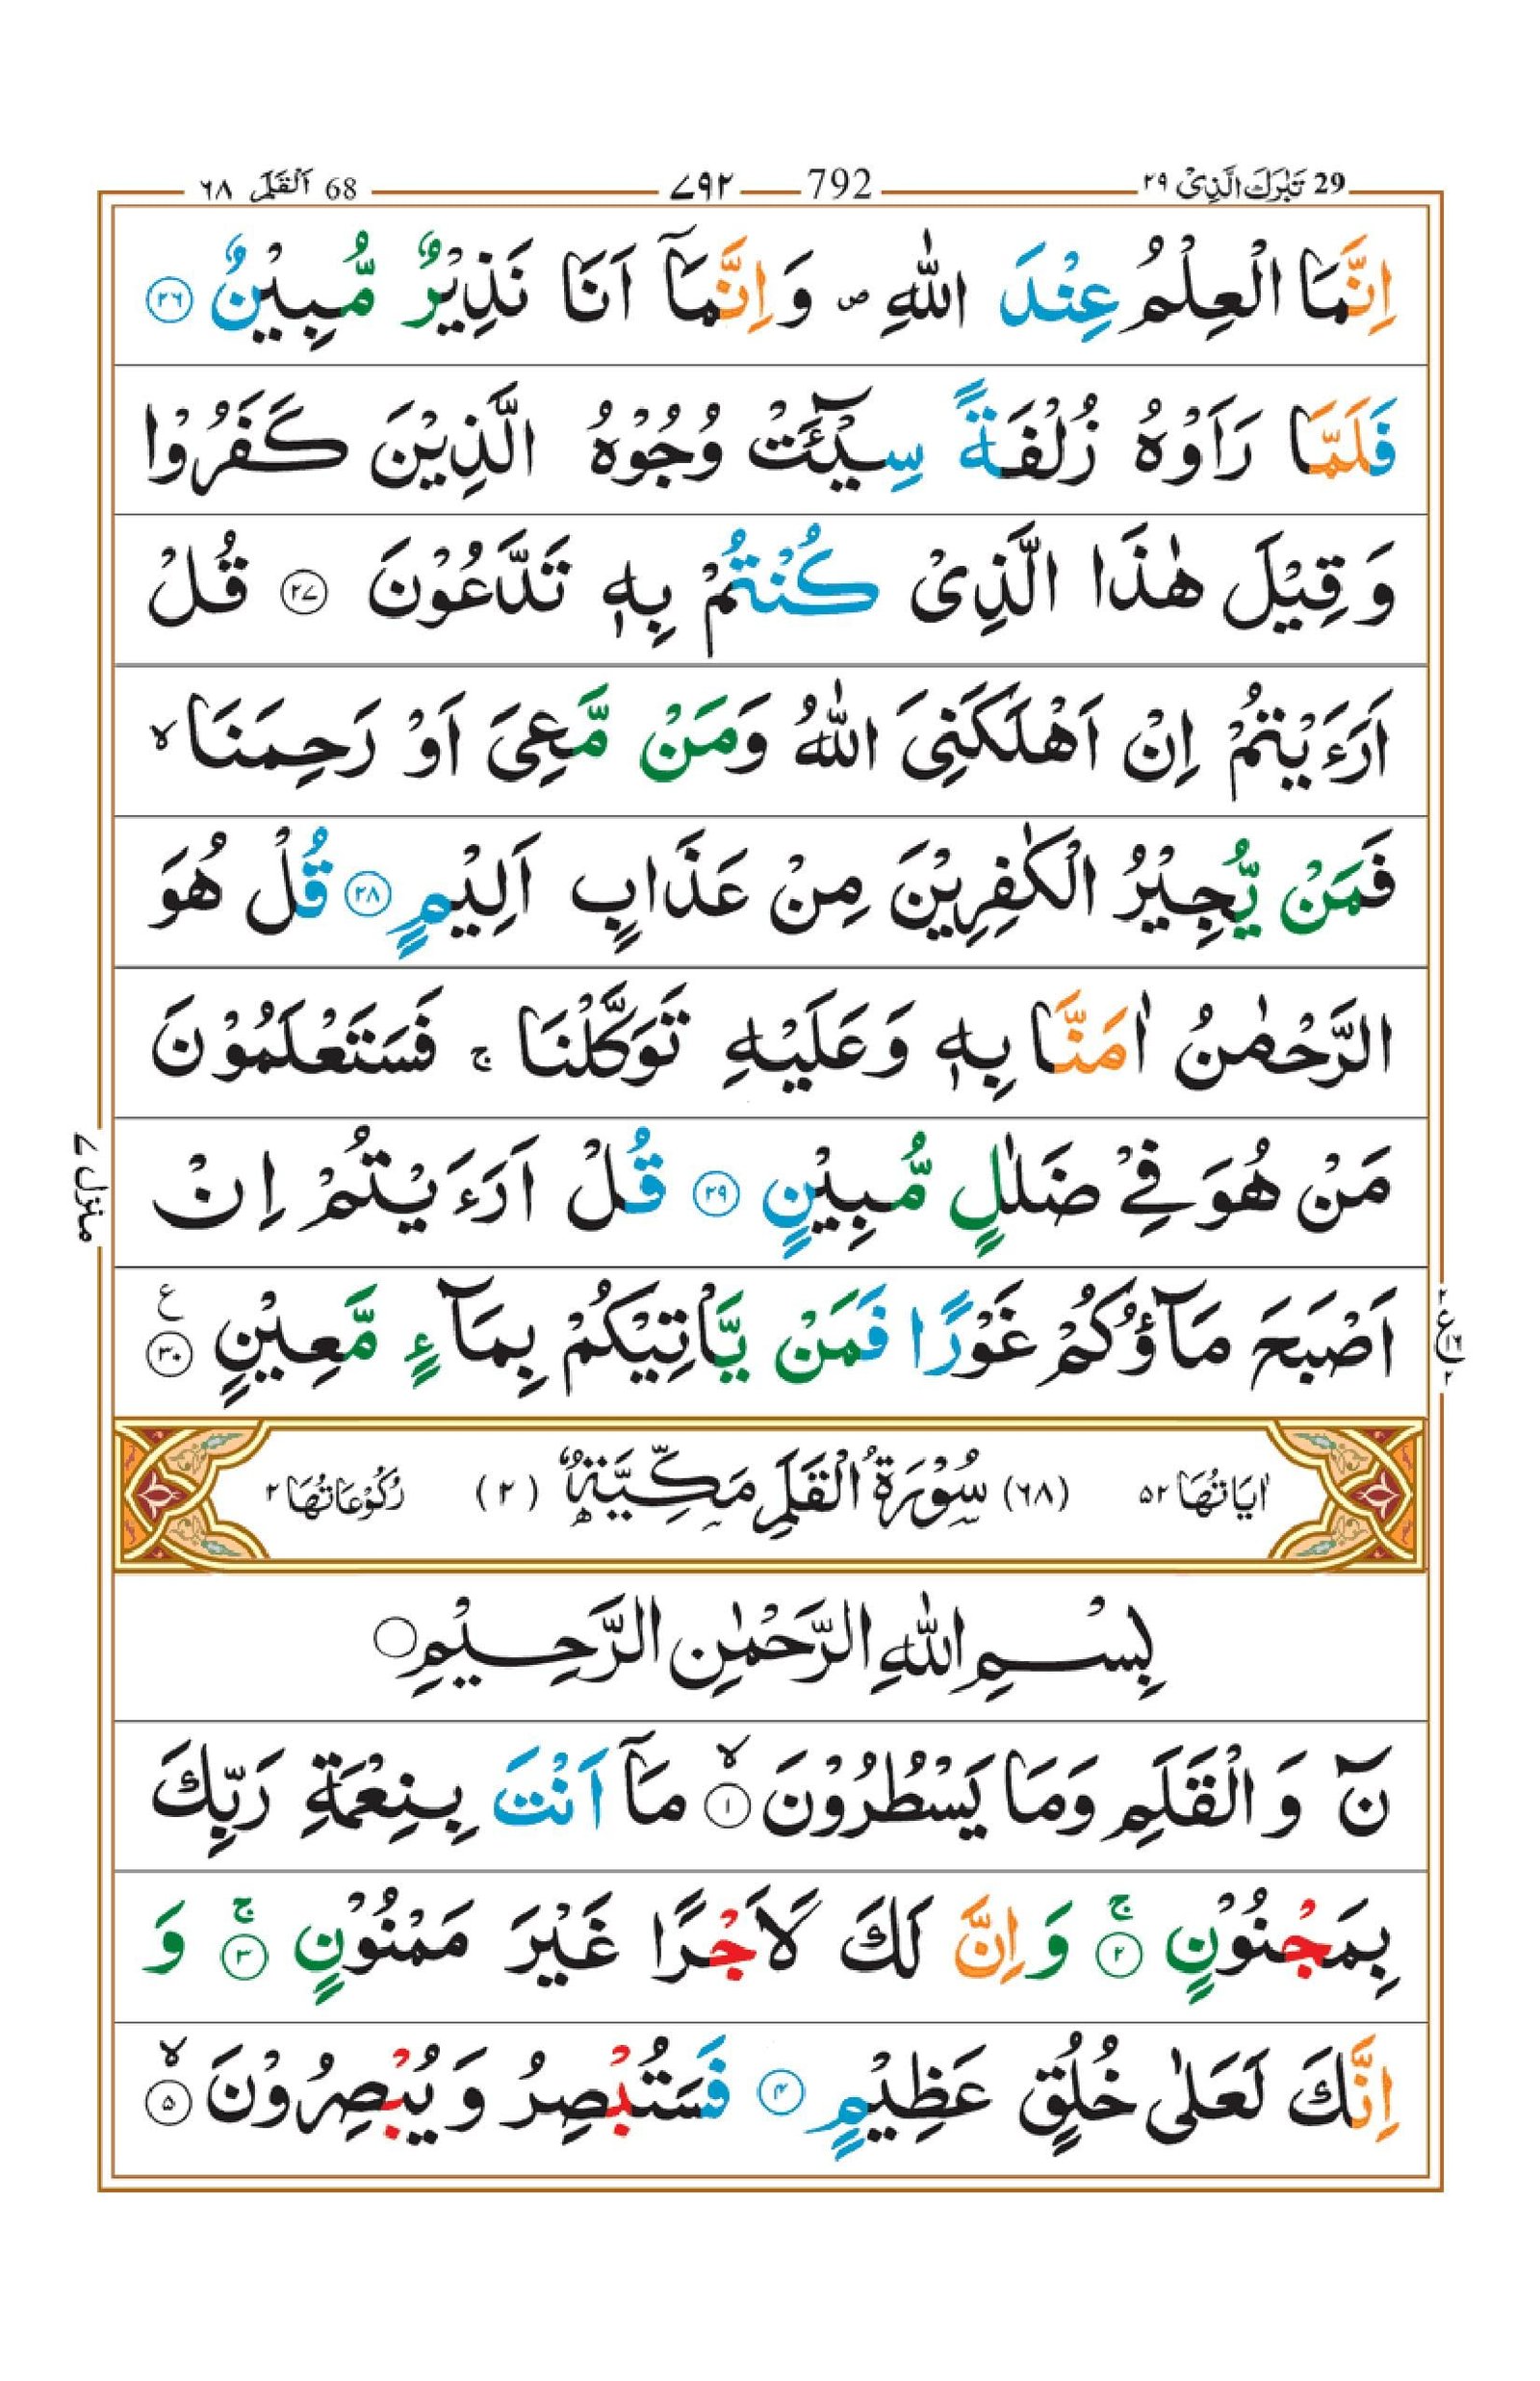 29 تَبٰرَكَ الَّذِیْ ۲۹ 792 ۷۹۲ 68 اَلْقَلَم ۶۸
اِنَّمَا الْعِلْمُ عِنْدَ اللّٰهِ ۪ وَ اِنَّمَاۤ اَنَا نَذِیْرٌ مُّبِیْنٌ ۲۶
فَلَمَّا رَاَوْهُ زُلْفَةً سِیْٓـَٔتْ وُجُوْهُ الَّذِیْنَ كَفَرُوْا
وَ قِیْلَ هٰذَا الَّذِیْ كُنْتُمْ بِهٖ تَدَّعُوْنَ ۲۷ قُلْ
اَرَءَیْتُمْ اِنْ اَهْلَكَنِیَ اللّٰهُ وَمَنْ مَّعِیَ اَوْ رَحِمَنَا ۙ
فَمَنْ یُّجِیْرُ الْكٰفِرِیْنَ مِنْ عَذَابٍ اَلِیْمٍ ۲۸ قُلْ هُوَ
الرَّحْمٰنُ اٰمَنَّا بِهٖ وَعَلَیْهِ تَوَكَّلْنَا ۚ فَسَتَعْلَمُوْنَ
مَنْ هُوَ فِیْ ضَلٰلٍ مُّبِیْنٍ ۲۹ قُلْ اَرَءَیْتُمْ اِنْ
اَصْبَحَ مَآؤُكُمْ غَوْرًا فَمَنْ یَّاْتِیْكُمْ بِمَآءٍ مَّعِیْنٍ ۳۰ ع
منزل ۷
۲ ع ۱۶ ۲
اٰیَاتُهَا ۵۲ (۶۸) سُوْرَةُ الْقَلَمِ مَكِّیَّةٌ (۲) رُكُوْعَاتُهَا ۲
بِسْمِ اللّٰهِ الرَّحْمٰنِ الرَّحِیْمِ
نٓ وَ الْقَلَمِ وَمَا یَسْطُرُوْنَ ۙ ۱ مَاۤ اَنْتَ بِنِعْمَةِ رَبِّكَ
بِمَجْنُوْنٍ ۚ ۲ وَ اِنَّ لَكَ لَاَجْرًا غَیْرَ مَمْنُوْنٍ ۚ ۳ وَ
اِنَّكَ لَعَلٰى خُلُقٍ عَظِیْمٍ ۴ فَسَتُبْصِرُ وَ یُبْصِرُوْنَ ۙ ۵